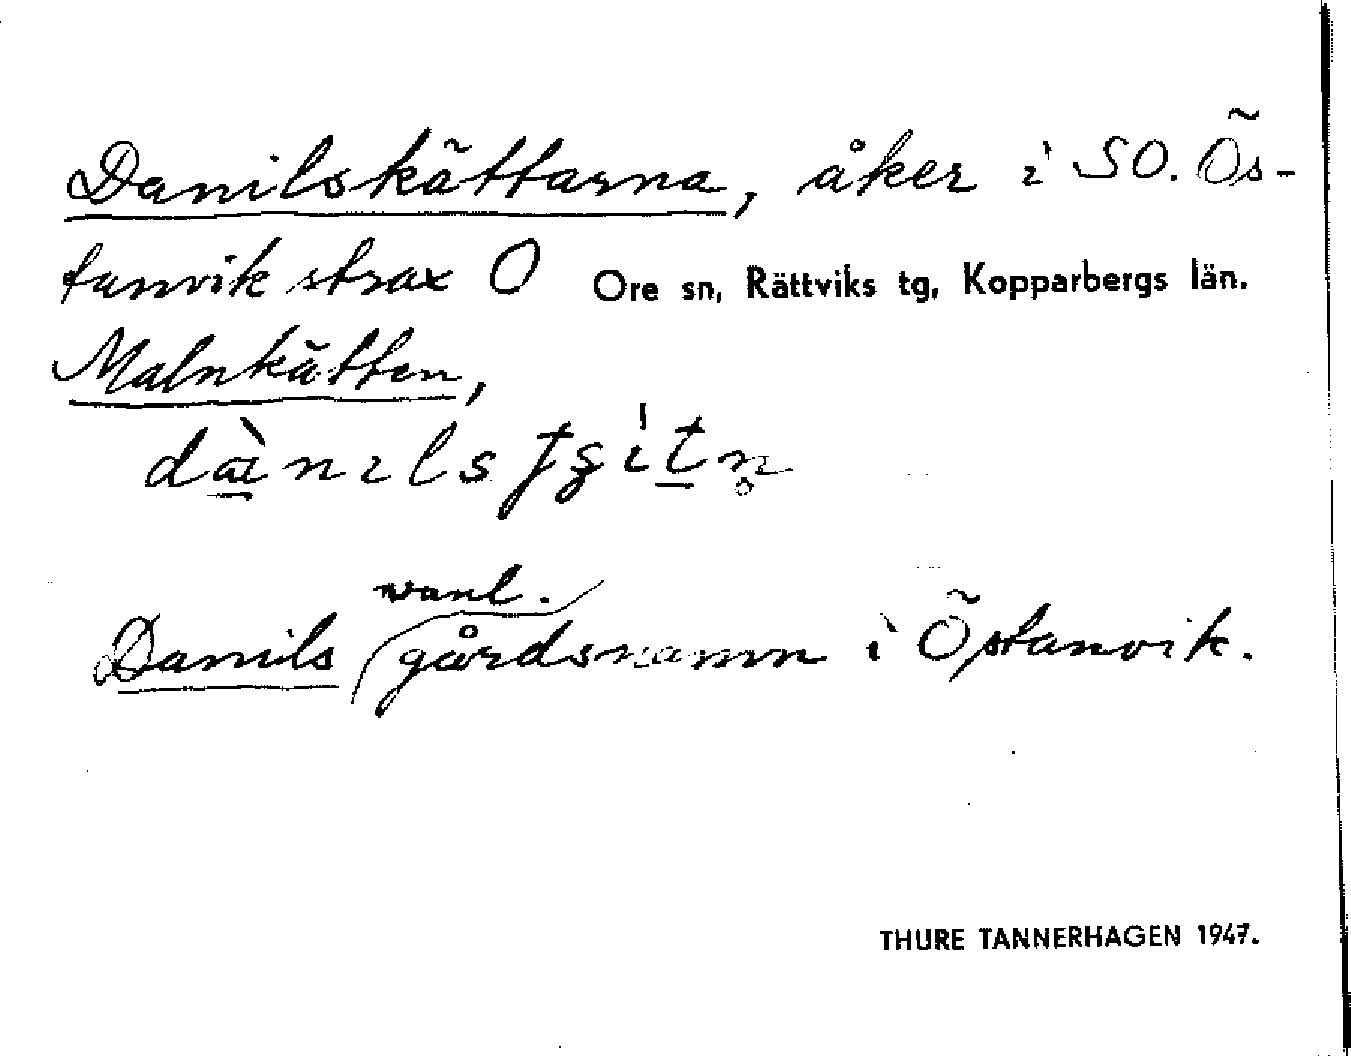 Danilskättarna, åker i SO. Ös-
tanvik strax O Ore sn, Rättviks tg, Kopparbergs län.
Malnkätten,
vanl.
Danils gårdsnamn i Östanvik.
THURE TANNERHAGEN 1947.